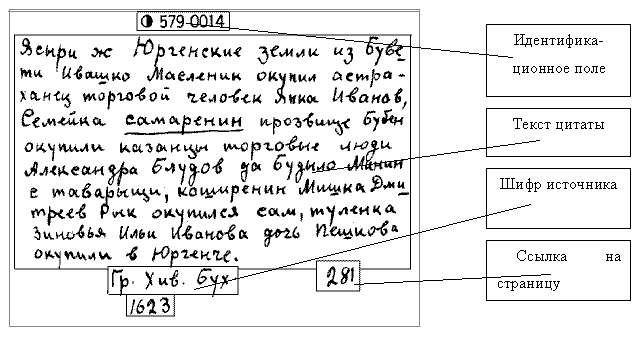 579-0014
Ясыри ж Юргенские земли из Буве-
ти Ивашко Масленик окупил астра-
ханец торговой человек Япка Иванов,
Семейка самаренин прозвище Бубен
окупили казанцы торговые люди
Александра Блудов да Будыло Минин
с таварыщи, коширенин Мишка Дми
треев Рык окупился сам, туленка
Зиновья Ильи Иванова дочь Пешкова
окупили в Юргенче.
Гр. Хив. Бух
281
1623
Идентифика-
ционное поле
Текст цитаты
Шифр источника
Ссылка на
страницу